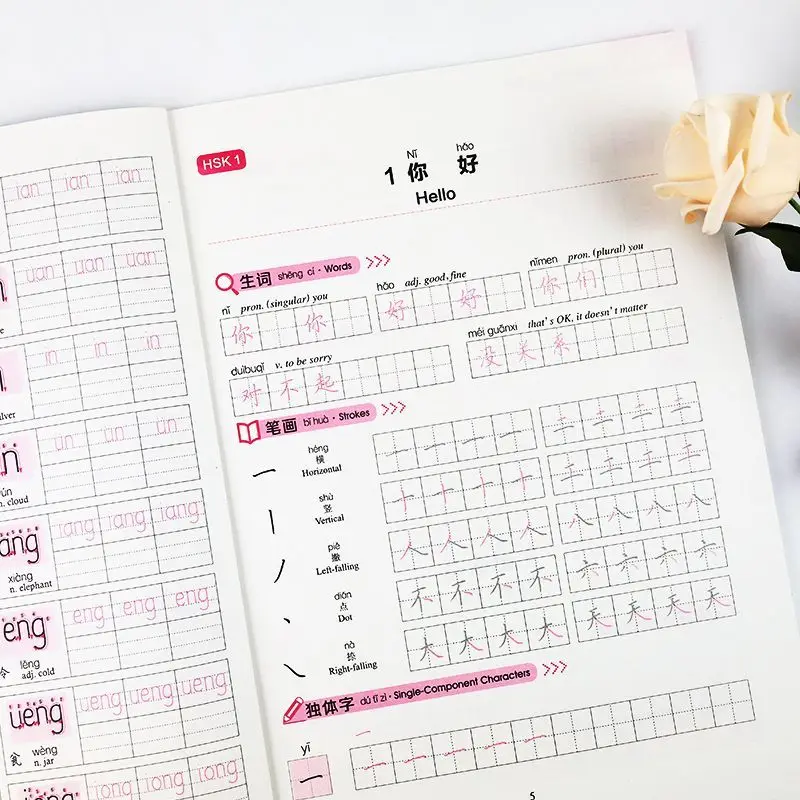 ian ian ian
uan uan uan
in in in
un un un
n. cloud
iang iang iang
iang
xiàng
n. elephant
eng eng eng
eng
lěng
冷 adj. cold
ueng ueng ueng
ueng
wèng
瓮 n. jar
iong iong iong
HSK 1
Nǐ hǎo
1 你 好
Hello
生词 shēng cí · Words
nǐ pron. (singular) you
你 你
hǎo adj. good, fine
好 好
nǐmen pron. (plural) you
你 们
duìbuqǐ v. to be sorry
对 不 起
méi guānxi that's OK, it doesn't matter
没 关 系
笔画 bǐ huà · Strokes
héng
横
Horizontal
一 一 一 一 二 二 二 二
shù
竖
Vertical
十 十 十 十 工 工 工 工
piě
撇
Left-falling
人 人 人 人 八 八 八 八
diǎn
点
Dot
不 不 不 不 六 六 六 六
nà
捺
Right-falling
大 大 大 大 天 天 天 天
独体字 dú tǐ zì · Single-Component Characters
yī
一
一 一 一 一 一
5